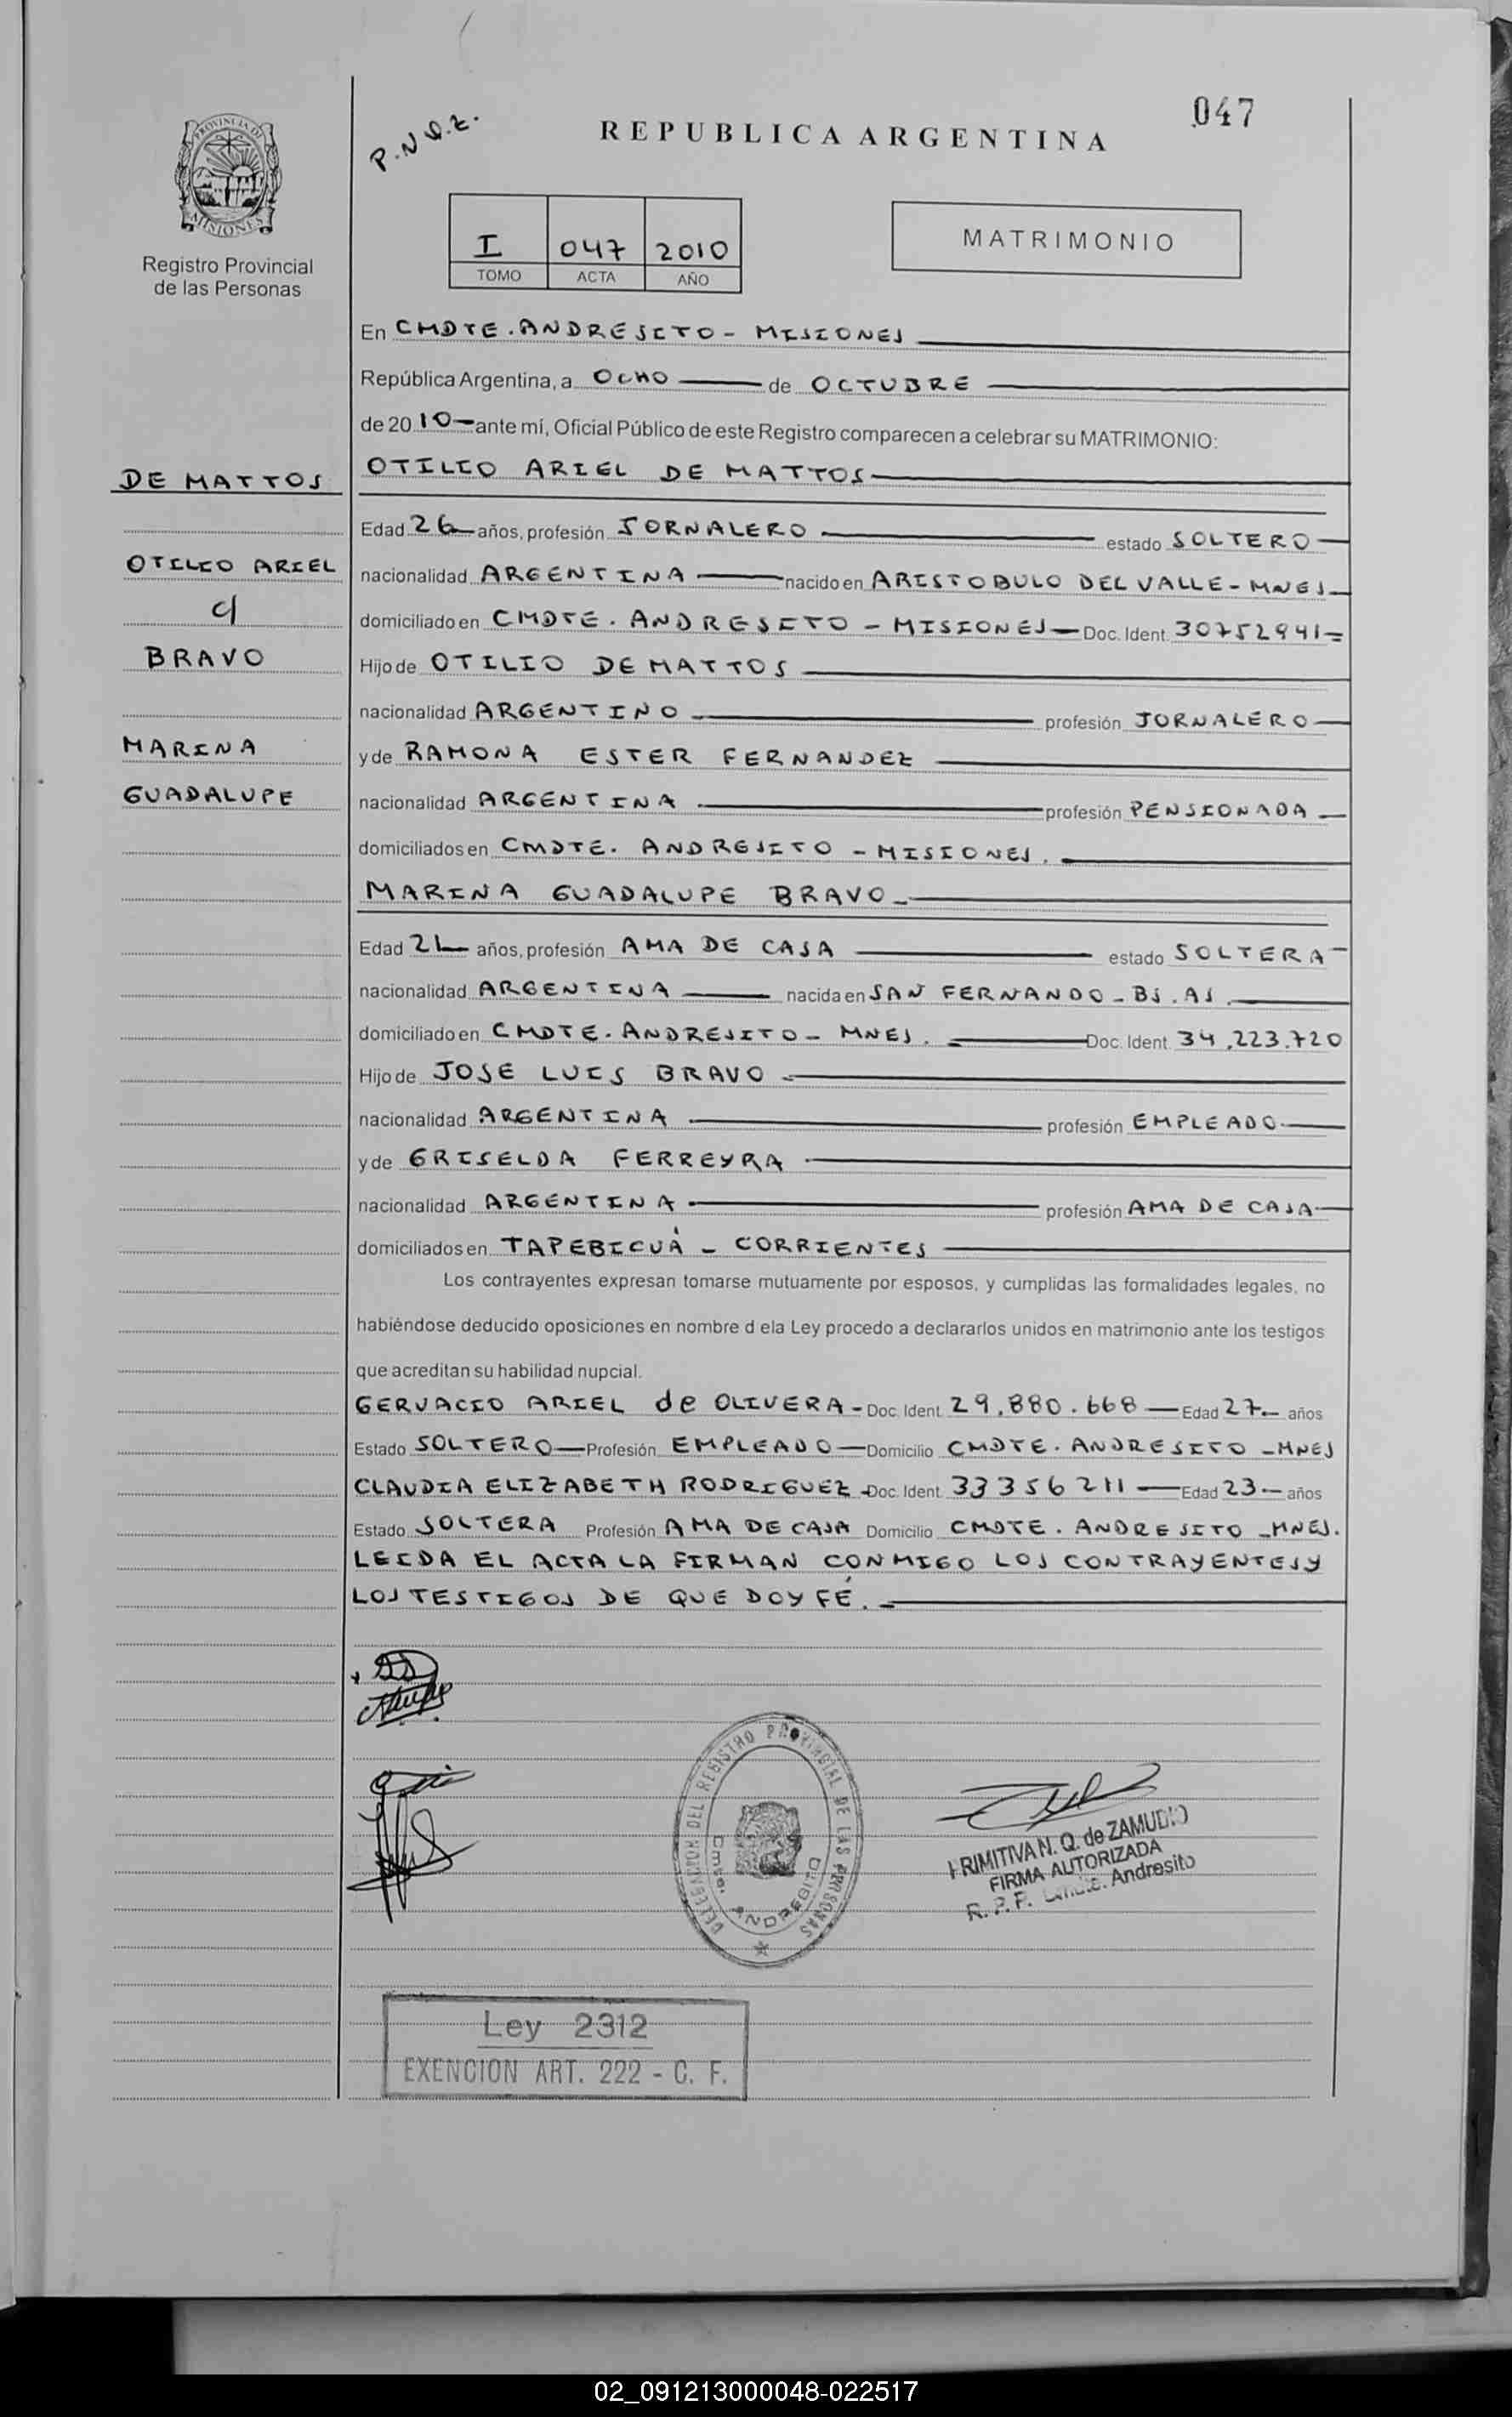 047
P.N.Q.Z.
REPUBLICA ARGENTINA
PROVINCIA DE MISIONES
Registro Provincial
de las Personas
I 047 2010
TOMO ACTA AÑO
MATRIMONIO
En CMDTE. ANDRESITO - MISIONES
República Argentina, a OCHO de OCTUBRE
de 2010 ante mí, Oficial Público de este Registro comparecen a celebrar su MATRIMONIO:
DE MATTOS
OTILIO ARIEL
c/
BRAVO
MARINA
GUADALUPE
OTILIO ARIEL DE MATTOS
Edad 26 años, profesión JORNALERO estado SOLTERO
nacionalidad ARGENTINA nacido en ARISTOBULO DEL VALLE - MNES
domiciliado en CMDTE. ANDRESITO - MISIONES Doc. Ident. 30752941
Hijo de OTILIO DE MATTOS
nacionalidad ARGENTINO profesión JORNALERO
y de RAMONA ESTER FERNANDEZ
nacionalidad ARGENTINA profesión PENSIONADA
domiciliados en CMDTE. ANDRESITO - MISIONES.
MARINA GUADALUPE BRAVO
Edad 21 años, profesión AMA DE CASA estado SOLTERA
nacionalidad ARGENTINA nacida en SAN FERNANDO - BS. AS.
domiciliado en CMDTE. ANDRESITO - MNES. Doc. Ident. 34.223.720
Hijo de JOSE LUIS BRAVO
nacionalidad ARGENTINA profesión EMPLEADO
y de GRISELDA FERREYRA
nacionalidad ARGENTINA profesión AMA DE CASA
domiciliados en TAPEBICUÁ - CORRIENTES
Los contrayentes expresan tomarse mutuamente por esposos, y cumplidas las formalidades legales, no
habiéndose deducido oposiciones en nombre d ela Ley procedo a declararlos unidos en matrimonio ante los testigos
que acreditan su habilidad nupcial.
GERVACIO ARIEL de OLIVERA - Doc. Ident. 29.880.668 Edad 27 años
Estado SOLTERO Profesión EMPLEADO Domicilio CMDTE. ANDRESITO - MNES
CLAUDIA ELIZABETH RODRIGUEZ - Doc. Ident. 33356211 Edad 23 años
Estado SOLTERA Profesión AMA DE CASA Domicilio CMDTE. ANDRESITO - MNES.
LEIDA EL ACTA LA FIRMAN CONMIGO LOS CONTRAYENTES Y
LOS TESTIGOS DE QUE DOY FÉ.
DELEGACION DEL REGISTRO PROVINCIAL DE LAS PERSONAS
Cmte. ANDRESITO
PRIMITIVA N. Q. de ZAMUDIO
FIRMA AUTORIZADA
R. P. P. Cmdte. Andresito
Ley 2312
EXENCION ART. 222 - C. F.
02_091213000048-022517